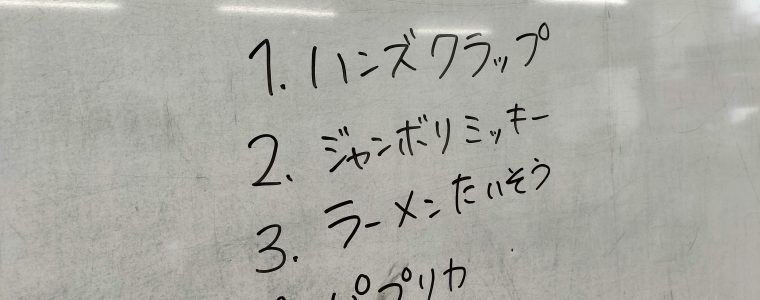 1. ハンズクラップ
2. ジャンボリミッキー
3. ラーメンたいそう
パプリカ